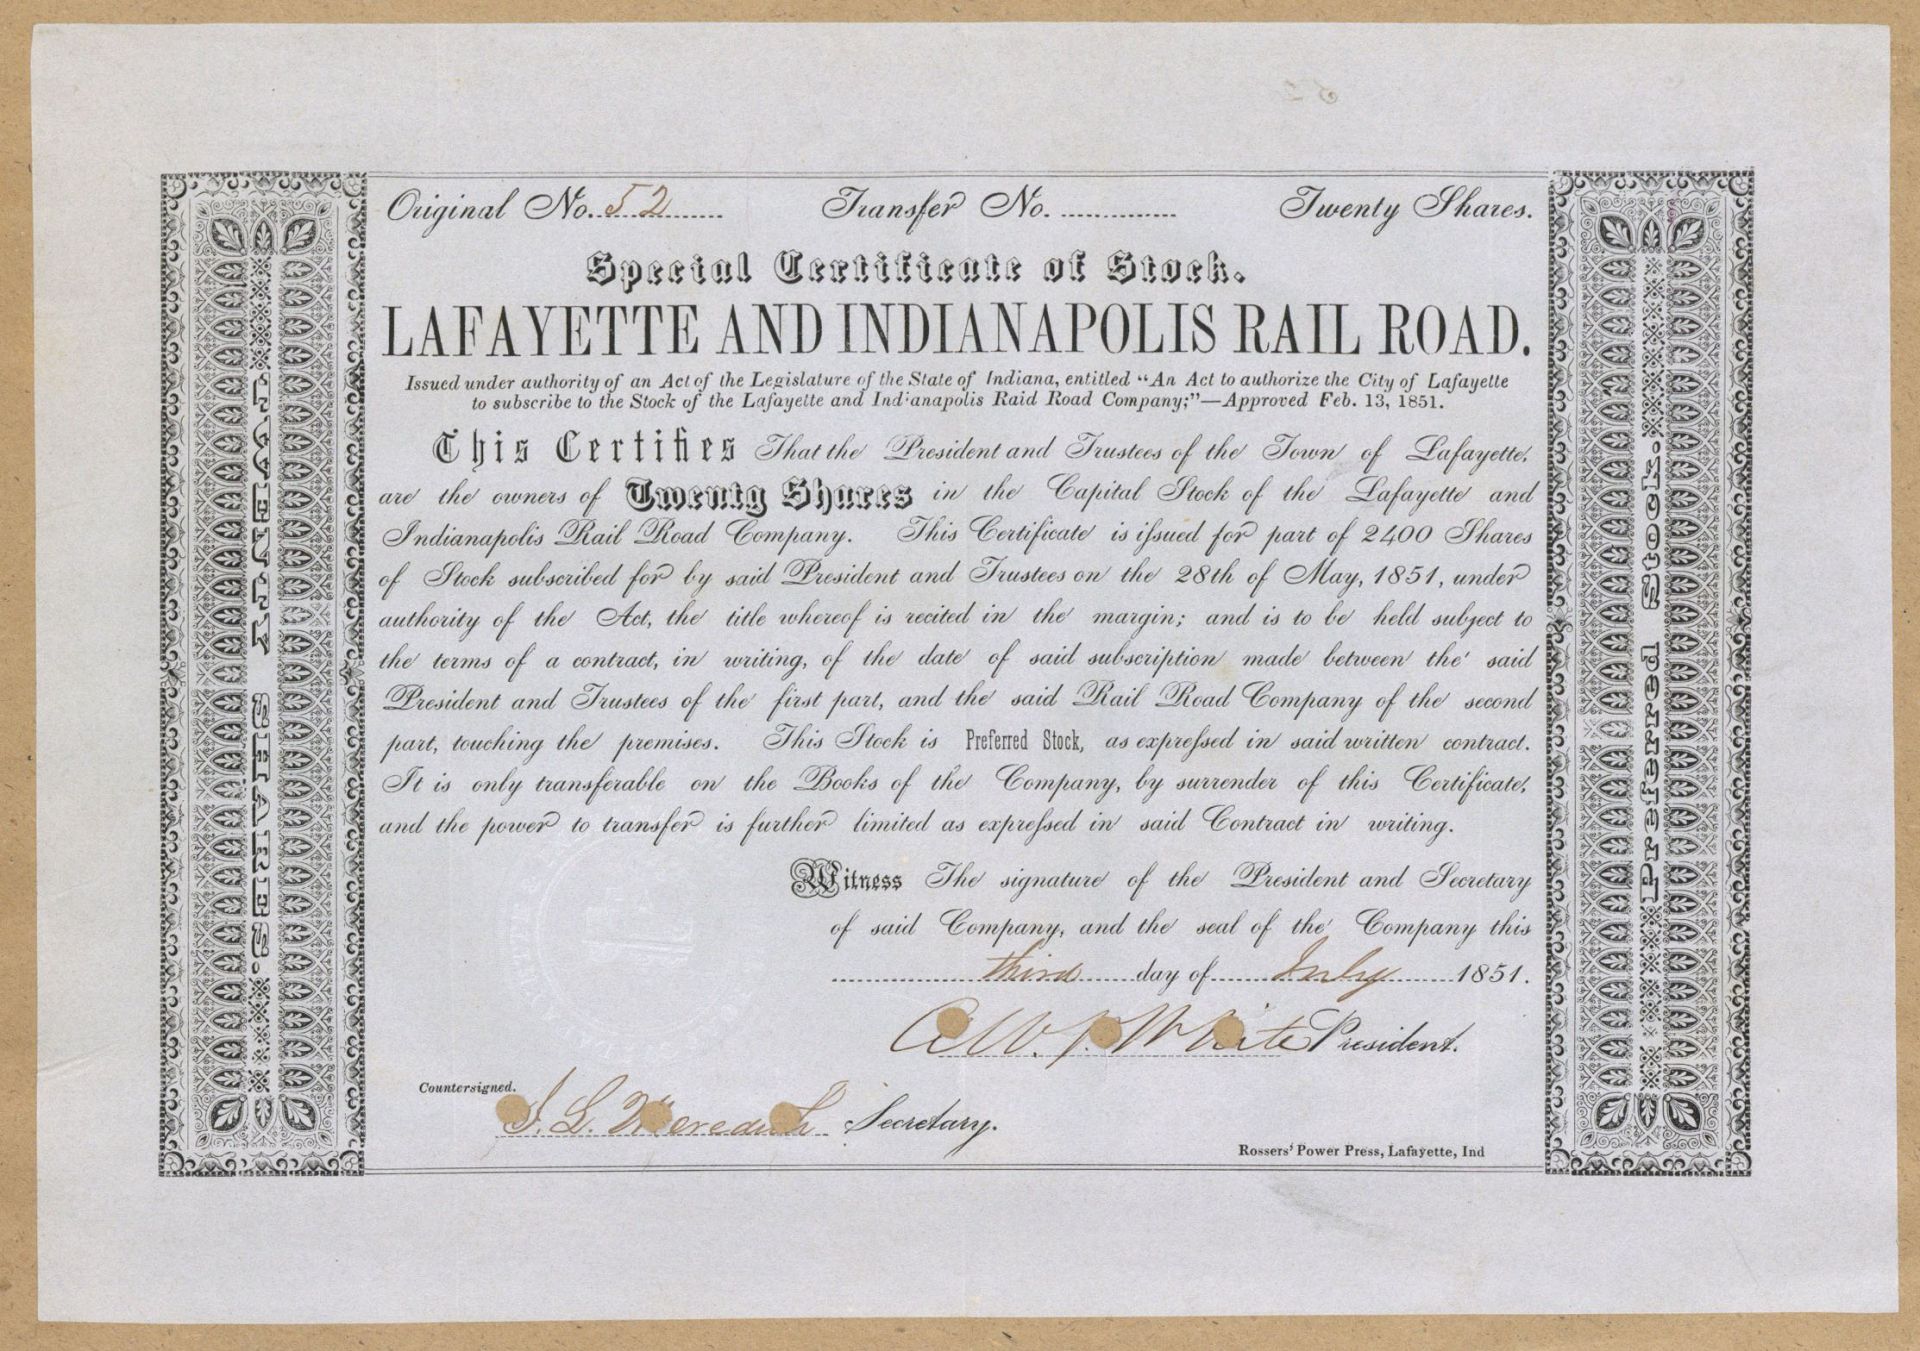 Original No. 52 Transfer No. Twenty Shares.
Special Certificate of Stock.
LAFAYETTE AND INDIANAPOLIS RAIL ROAD.
Issued under authority of an Act of the Legislature of the State of Indiana, entitled "An Act to authorize the City of Lafayette
to subscribe to the Stock of the Lafayette and Indianapolis Raid Road Company;"—Approved Feb. 13, 1851.
This Certifies That the President and Trustees of the Town of Lafayette,
are the owners of Twenty Shares in the Capital Stock of the Lafayette and
Indianapolis Rail Road Company. This Certificate is issued for part of 2400 Shares
of Stock subscribed for by said President and Trustees on the 28th of May, 1851, under
authority of the Act, the title whereof is recited in the margin; and is to be held subject to
the terms of a contract, in writing, of the date of said subscription made between the said
President and Trustees of the first part, and the said Rail Road Company of the second
part, touching the premises. This Stock is Preferred Stock, as expressed in said written contract.
It is only transferable on the Books of the Company, by surrender of this Certificate,
and the power to transfer is further limited as expressed in said Contract in writing.
Witness The signature of the President and Secretary
of said Company, and the seal of the Company this
third day of July 1851.
White President.
Countersigned.
J. L. Meredith Secretary.
Rossers' Power Press, Lafayette, Ind
TWENTY SHARES.
Preferred Stock.